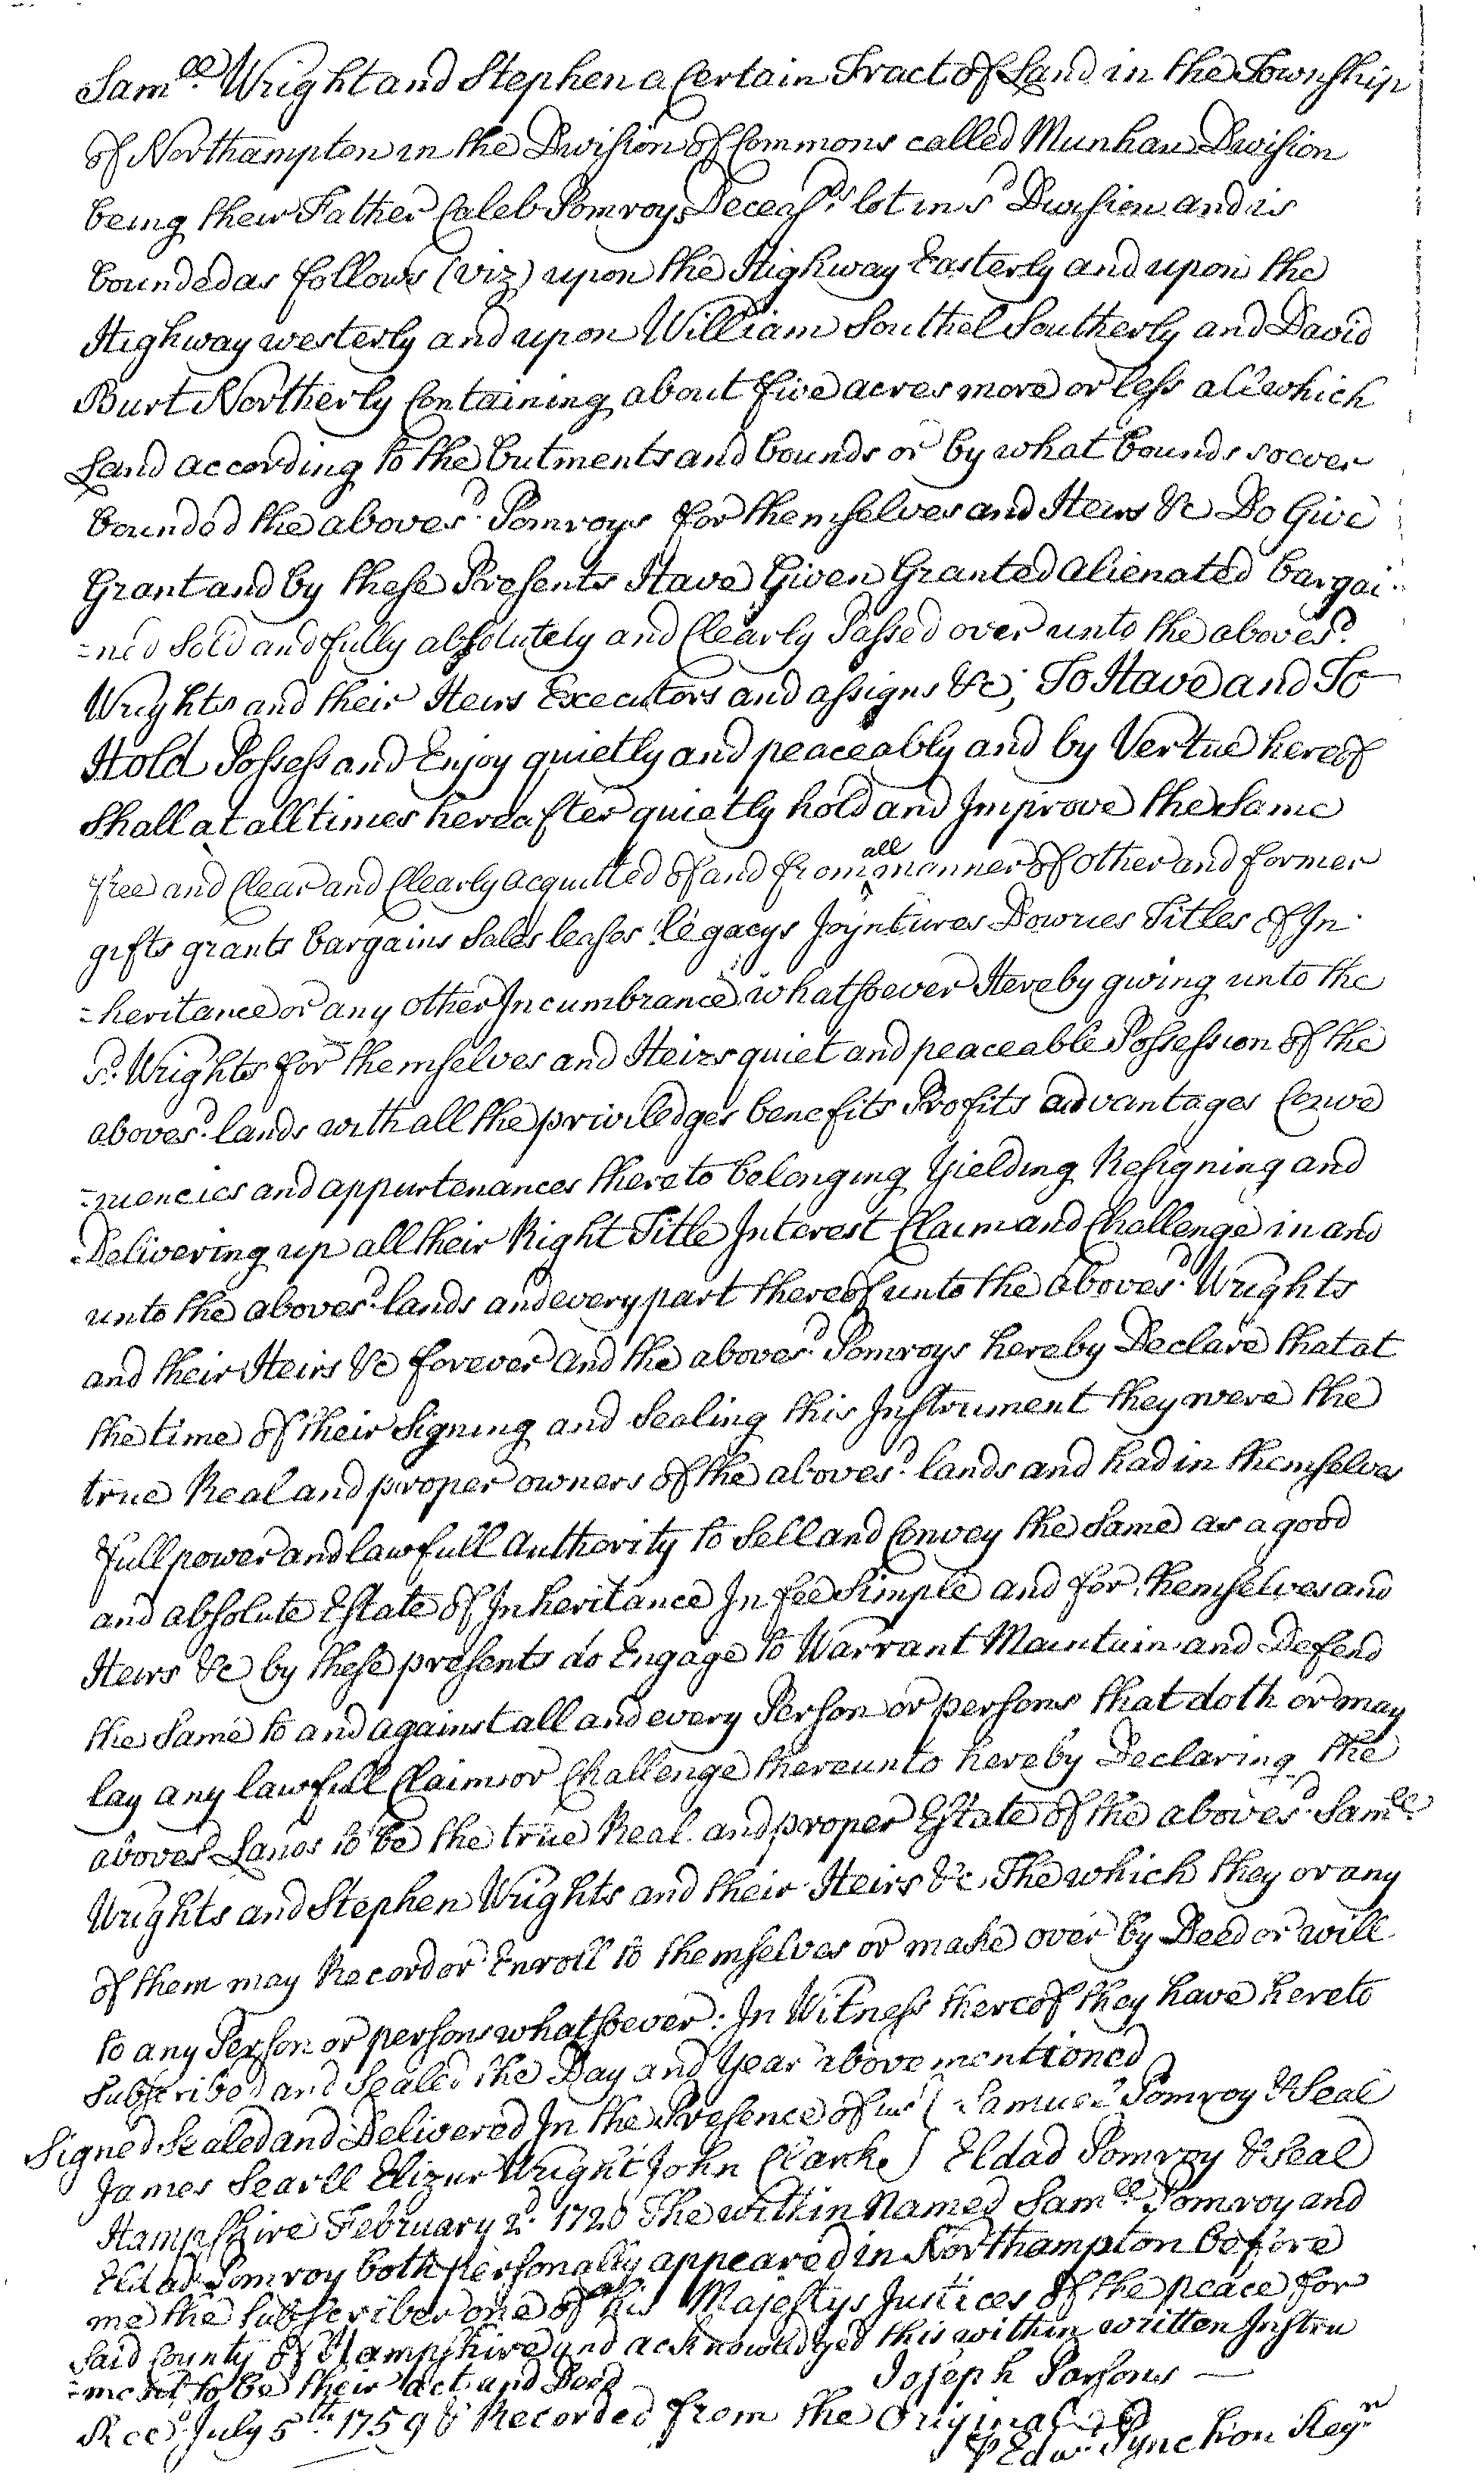 Sam.ll Wright and Stephen a Certain Tract of Land in the Township
of Northampton in the Division of Commons called Munhan Division
being their Father Caleb Pomroys Deceas.d lot in s.d Division and is
bounded as follows (viz) upon the Highway Easterly and upon the
Highway westerly and upon William Southel Southerly and David
Burt Northerly Containing about five acres more or less all which
Land according to the butments and bounds or by what bounds soever
bounded the aboves.d Pomroys for themselves and Heirs &c Do Give
Grant and by these Presents Have Given Granted alienated bargai-
=ned Sold and fully absolutely and Clearly Passed over unto the aboves.d
Wrights and their Heirs Executors and assigns &c; To Have and To
Hold Possess and Enjoy quietly and peaceably and by Vertue hereof
Shall at all times hereafter quietly hold and Improve the Same
free and Clear and Clearly acquitted of and from all manner of other and former
gifts grants bargains Sales leases legacys Joyntures Dowries Titles of In
=heritance or any other Incumbrance whatsoever Hereby giving unto the
s.d Wrights for themselves and Heirs quiet and peaceable Possession of the
aboves.d lands with all the priviledges benefits Profits advantages Conve
=niencies and appurtenances thereto belonging Yielding Resigning and
Delivering up all their Right Title Interest Claim and Challenge in and
unto the aboves.d lands and every part thereof unto the aboves.d Wrights
and their Heirs &c forever and the aboves.d Pomroys hereby Declare that at
the time of their Signing and Sealing this Instrument they were the
true Real and proper owners of the aboves.d lands and had in themselves
full power and lawfull Authority to Sell and Convey the Same as a good
and absolute Estate of Inheritance In fee Simple and for themselves and
Heirs &c by these presents do Engage to Warrant Maintain and Defend
the Same to and against all and every Person or persons that doth or may
lay any lawfull Claim or Challenge thereunto hereby Declaring the
aboves.d Lands to be the true Real and proper Estate of the aboves.d Sam.ll
Wrights and Stephen Wrights and their Heirs &c The which they or any
of them may Record or Enroll to themselves or make over by Deed or will
to any Person or persons whatsoever: In Witness thereof they have hereto
Subscribed and Sealed the Day and Year above mentioned
Signed Sealed and Delivered In the Presence of us { Samuel Pomroy & Seal
James Searll Elizur Wright John Clarke } Eldad Pomroy & Seal
Hampshire February 2.d 1720 The within Named Sam.ll Pomroy and
Eldad Pomroy both personally appeared in Northampton before
me the Subscriber one of his Majestys Justices of the peace for
Said County of Hampshire and acknowledged this within written Instru
=ment to be their act and Deed
Joseph Parsons —
Rec.d July 5.th 1759 & Recorded from the Original
P Edw.d Pynchon Reg.r